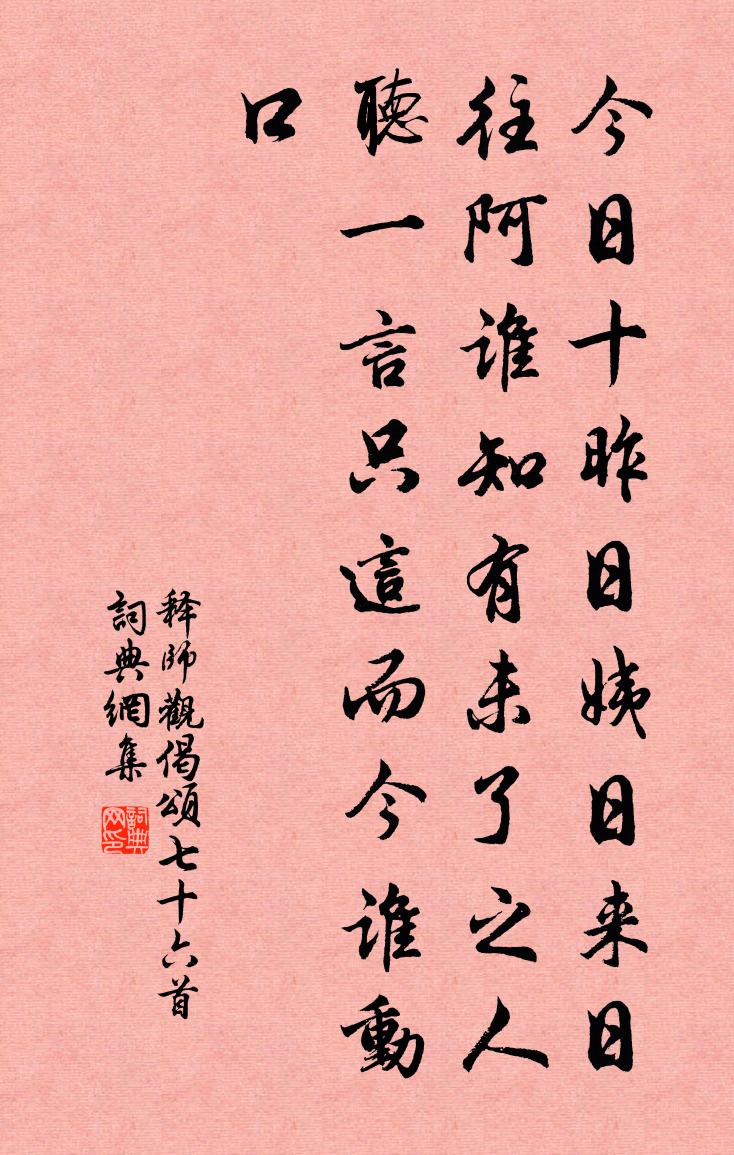 今日十昨日姨日来日
往阿谁知有未了之人
聴一言只這而今谁動
口
释師觀偈頌七十六首
詞典網集
詞典网印